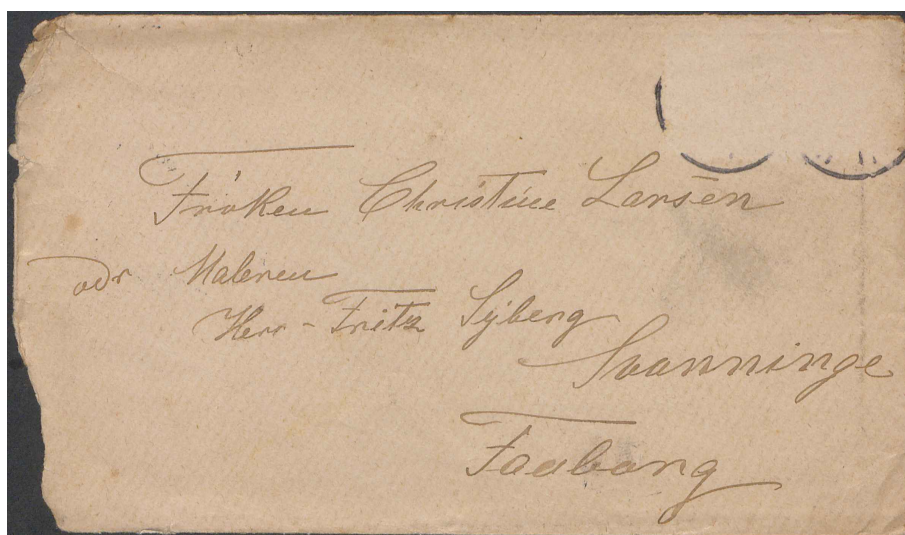 Frøken Christine Larsen
adr Maleren
Herr - Fritz Syberg
Svanninge
Faaborg